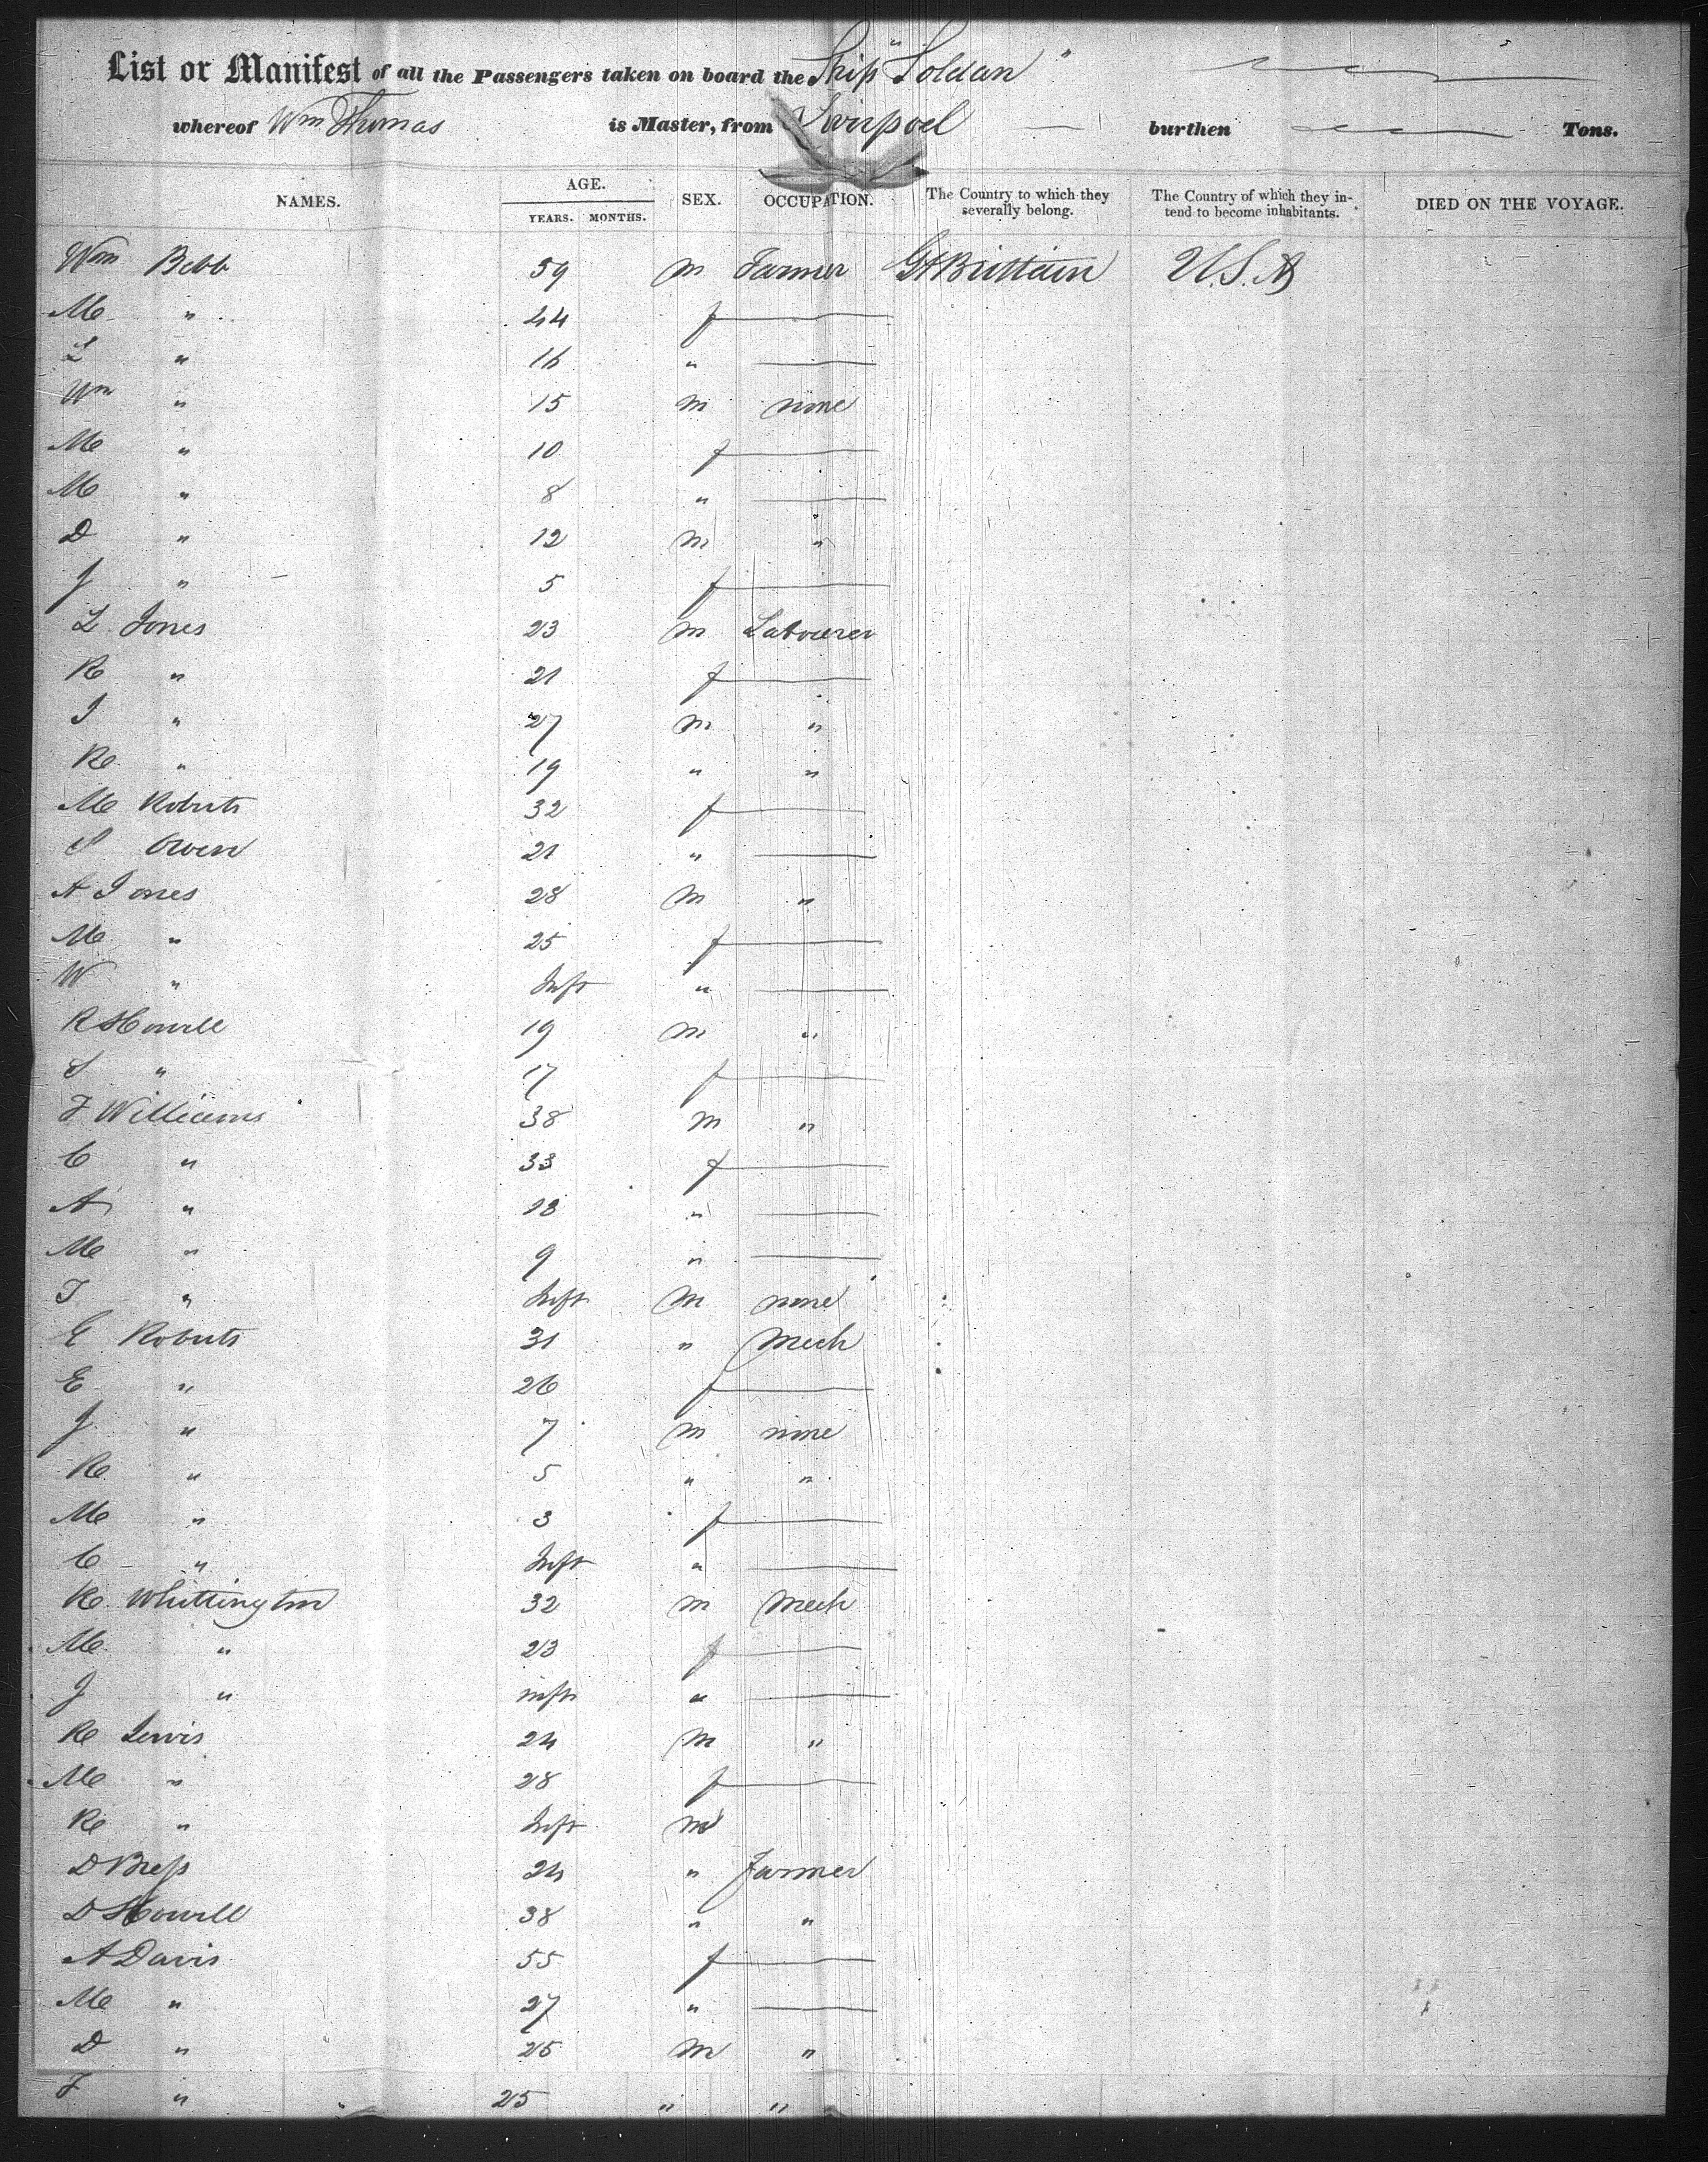 List or Manifest of all the Passengers taken on board the Ship "Soldan"
whereof Wm Thomas is Master, from Liverpoel burthen Tons.
NAMES. AGE. YEARS. MONTHS. SEX. OCCUPATION. The Country to which they severally belong. The Country of which they in-tend to become inhabitants. DIED ON THE VOYAGE.
Wm Bebb 59 m Farmer Gt Brittain U.S.A
M " 44 f
L " 16 "
Wm " 15 m none
M " 10 f
M " 8 "
D " 12 m "
J " 5 f
L Jones 23 m Labourer
R " 21 f
I " 27 m "
R " 19 " "
M Roberts 32 f
S Owen 21 "
A Jones 28 m "
M " 25 f
W " Inft "
R Howell 19 m "
S " 17 f
F Williams 38 m "
C " 33 f
A " 13 "
M " 9 "
T " Inft m none
E Roberts 31 " Mech
E " 26 f
J " 7 m none
R " 5 " "
M " 3 f
C " Inft "
R Whittington 32 m Mech
M " 23 f
J " inft "
R Lewis 24 m "
M " 28 f
R " Inft m
D 24 " Farmer
D Howell 38 " "
A Davis 55 f
M " 27 "
D " 25 m "
F " 25 " "